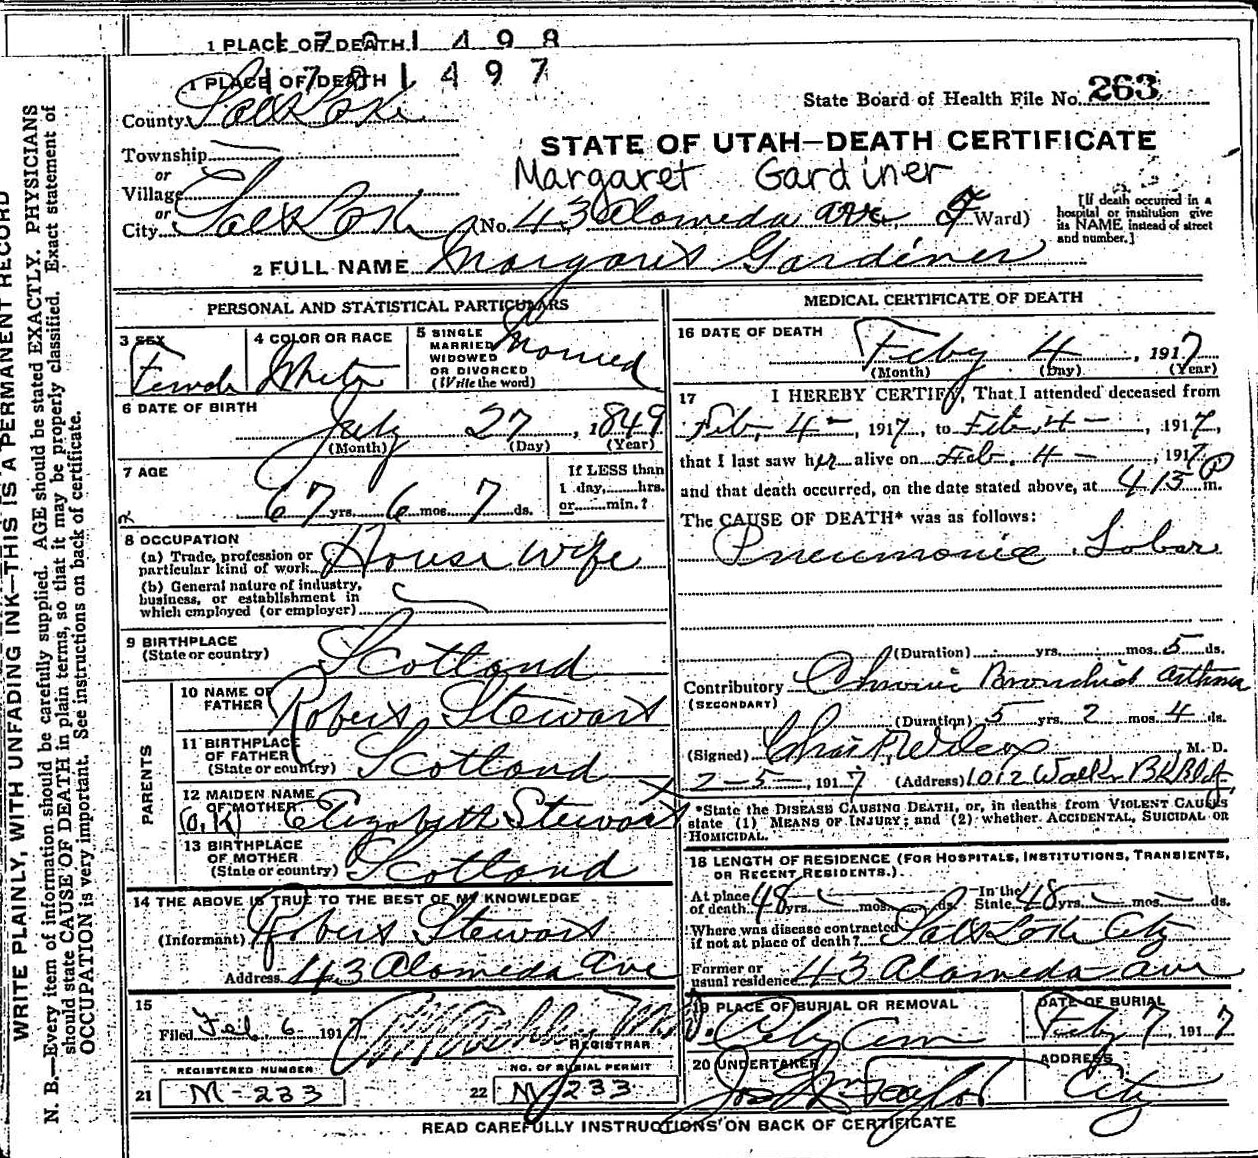 1 PLACE OF DEATH 1 7 0 1 4 9 8
1 PLACE OF DEATH 1 7 0 1 4 9 7
State Board of Health File No. 263
County Salt Lake
STATE OF UTAH—DEATH CERTIFICATE
Township
Margaret Gardiner
or
Village
or
City Salt Lake (No. 43 Alameda Ave St., Ward)
[If death occurred in a hospital or institution give its NAME instead of street and number.]
2 FULL NAME Margaret Gardiner
PERSONAL AND STATISTICAL PARTICULARS
3 SEX Female
4 COLOR OR RACE White
5 SINGLE MARRIED WIDOWED OR DIVORCED (Write the word) Married
6 DATE OF BIRTH
July 27, 1849
(Month) (Day) (Year)
7 AGE
67 yrs. 6 mos. 7 ds.
If LESS than 1 day, hrs. or min.?
8 OCCUPATION
(a) Trade, profession or particular kind of work House Wife
(b) General nature of industry, business, or establishment in which employed (or employer)
9 BIRTHPLACE (State or country) Scotland
PARENTS
10 NAME OF FATHER Robert Stewart
11 BIRTHPLACE OF FATHER (State or country) Scotland
12 MAIDEN NAME OF MOTHER (O.K) Elizabeth Stewart
13 BIRTHPLACE OF MOTHER (State or country) Scotland
14 THE ABOVE IS TRUE TO THE BEST OF MY KNOWLEDGE
(Informant) Robert Stewart
Address 43 Alameda Ave
15
Filed Feb. 6 1917
REGISTRAR
REGISTERED NUMBER
21 M-233
NO. OF BURIAL PERMIT
22 M 233
MEDICAL CERTIFICATE OF DEATH
16 DATE OF DEATH
Feby 4, 1917
(Month) (Day) (Year)
17 I HEREBY CERTIFY, That I attended deceased from
Feb. 4 —, 1917, to Feb. 4 —, 1917,
that I last saw her alive on Feb. 4 —, 1917
and that death occurred, on the date stated above, at 413 P m.
The CAUSE OF DEATH* was as follows:
Pneumonia Lobar
(Duration) yrs. mos. 5 ds.
Contributory (SECONDARY) Chronic Bronchial Asthma
(Duration) 5 yrs. 2 mos. 4 ds.
(Signed) Chas. F. Wilcox, M. D.
2-5-, 1917 (Address) 1012 Walker Bk Bldg
*State the DISEASE CAUSING DEATH, or, in deaths from VIOLENT CAUSES state (1) MEANS OF INJURY; and (2) whether ACCIDENTAL, SUICIDAL OR HOMICIDAL.
18 LENGTH OF RESIDENCE (FOR HOSPITALS, INSTITUTIONS, TRANSIENTS, OR RECENT RESIDENTS.)
At place of death 48 yrs. mos. ds. In the State 48 yrs. mos. ds.
Where was disease contracted if not at place of death? Salt Lake City
Former or usual residence 43 Alameda ave
19 PLACE OF BURIAL OR REMOVAL City Cem
DATE OF BURIAL Feby 7 1917
20 UNDERTAKER Jos Wm Taylor
ADDRESS City
READ CAREFULLY INSTRUCTIONS ON BACK OF CERTIFICATE
WRITE PLAINLY, WITH UNFADING INK—THIS IS A PERMANENT RECORD
N. B.—Every item of information should be carefully supplied. AGE should be stated EXACTLY. PHYSICIANS
should state CAUSE OF DEATH in plain terms, so that it may be properly classified. Exact statement of
OCCUPATION is very important. See instructions on back of certificate.